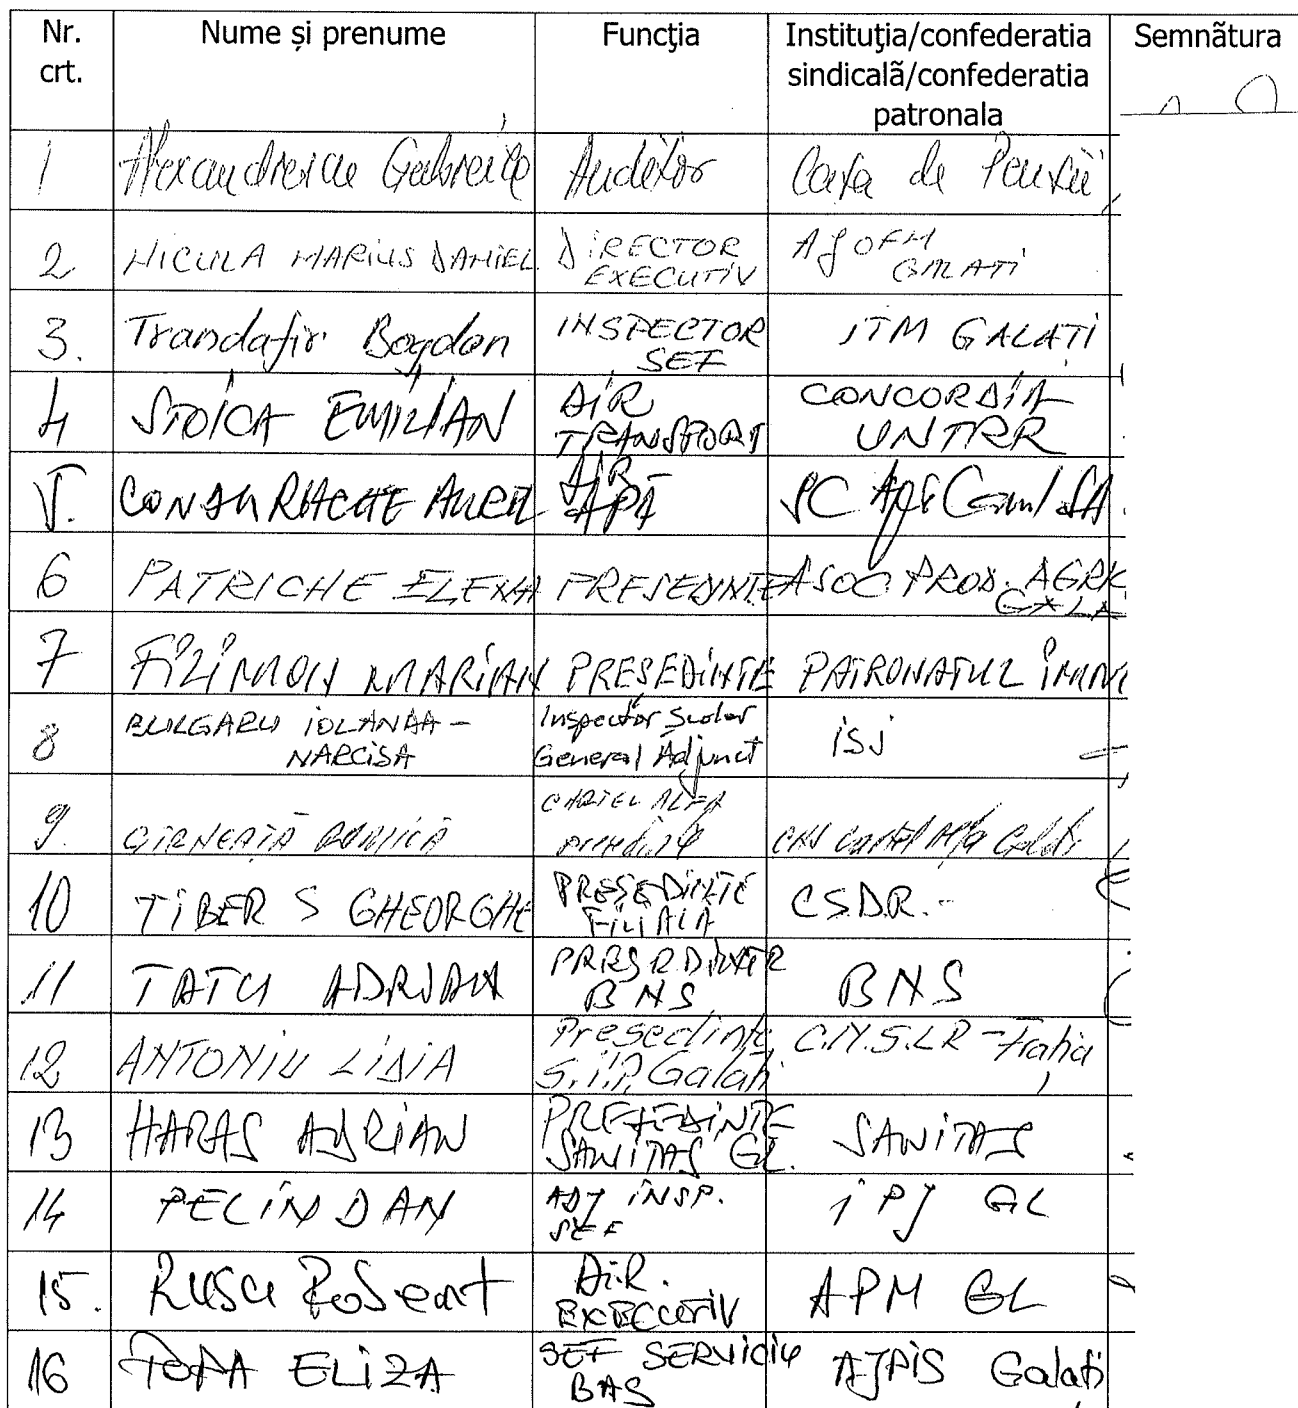 Nr. crt. Nume și prenume Funcţia Instituţia/confederatia sindicalã/confederatia patronala Semnãtura
1 Gabriela Auditor Casa de Pensii
2 NICULA MARIUS DANIEL DIRECTOR EXECUTIV AJOFM GALATI
3. Trandafir Bogdan INSPECTOR SEF ITM GALAȚI
4 STOICA EMILIAN DIR TRANSPORT CONCORDIA UNTRR
5. CONDURACHE AUREL DIR APĂ SC SA
6 PATRICHE ELENA PRESEDINTE ASOC. PROD. AGRIC
7 FILIMON MARIAN PRESEDINTE PATRONATUL
8 BULGARU IOLANDA - NARCISA Inspector Scolar General Adjunct ISJ
9. RODICA CARTEL ALFA
10 TIBER S GHEORGHE PRESEDINTE FILIALA C.S.D.R.-
11 TATU ADRIAN BNS BNS
12 ANTONIU LIDIA Presedinte S.I.P. Galati C.N.S.L.R - Fratia
13 HARAS ADRIAN PRESEDINTE SANITAS GL. SANITAS
14 PELIN DAN ADJ INSP. SEF IPJ GL
15. RUSU DIR. EXECUTIV APM GL
16 ELIZA SEF SERVICIU BAS AJPIS Galați